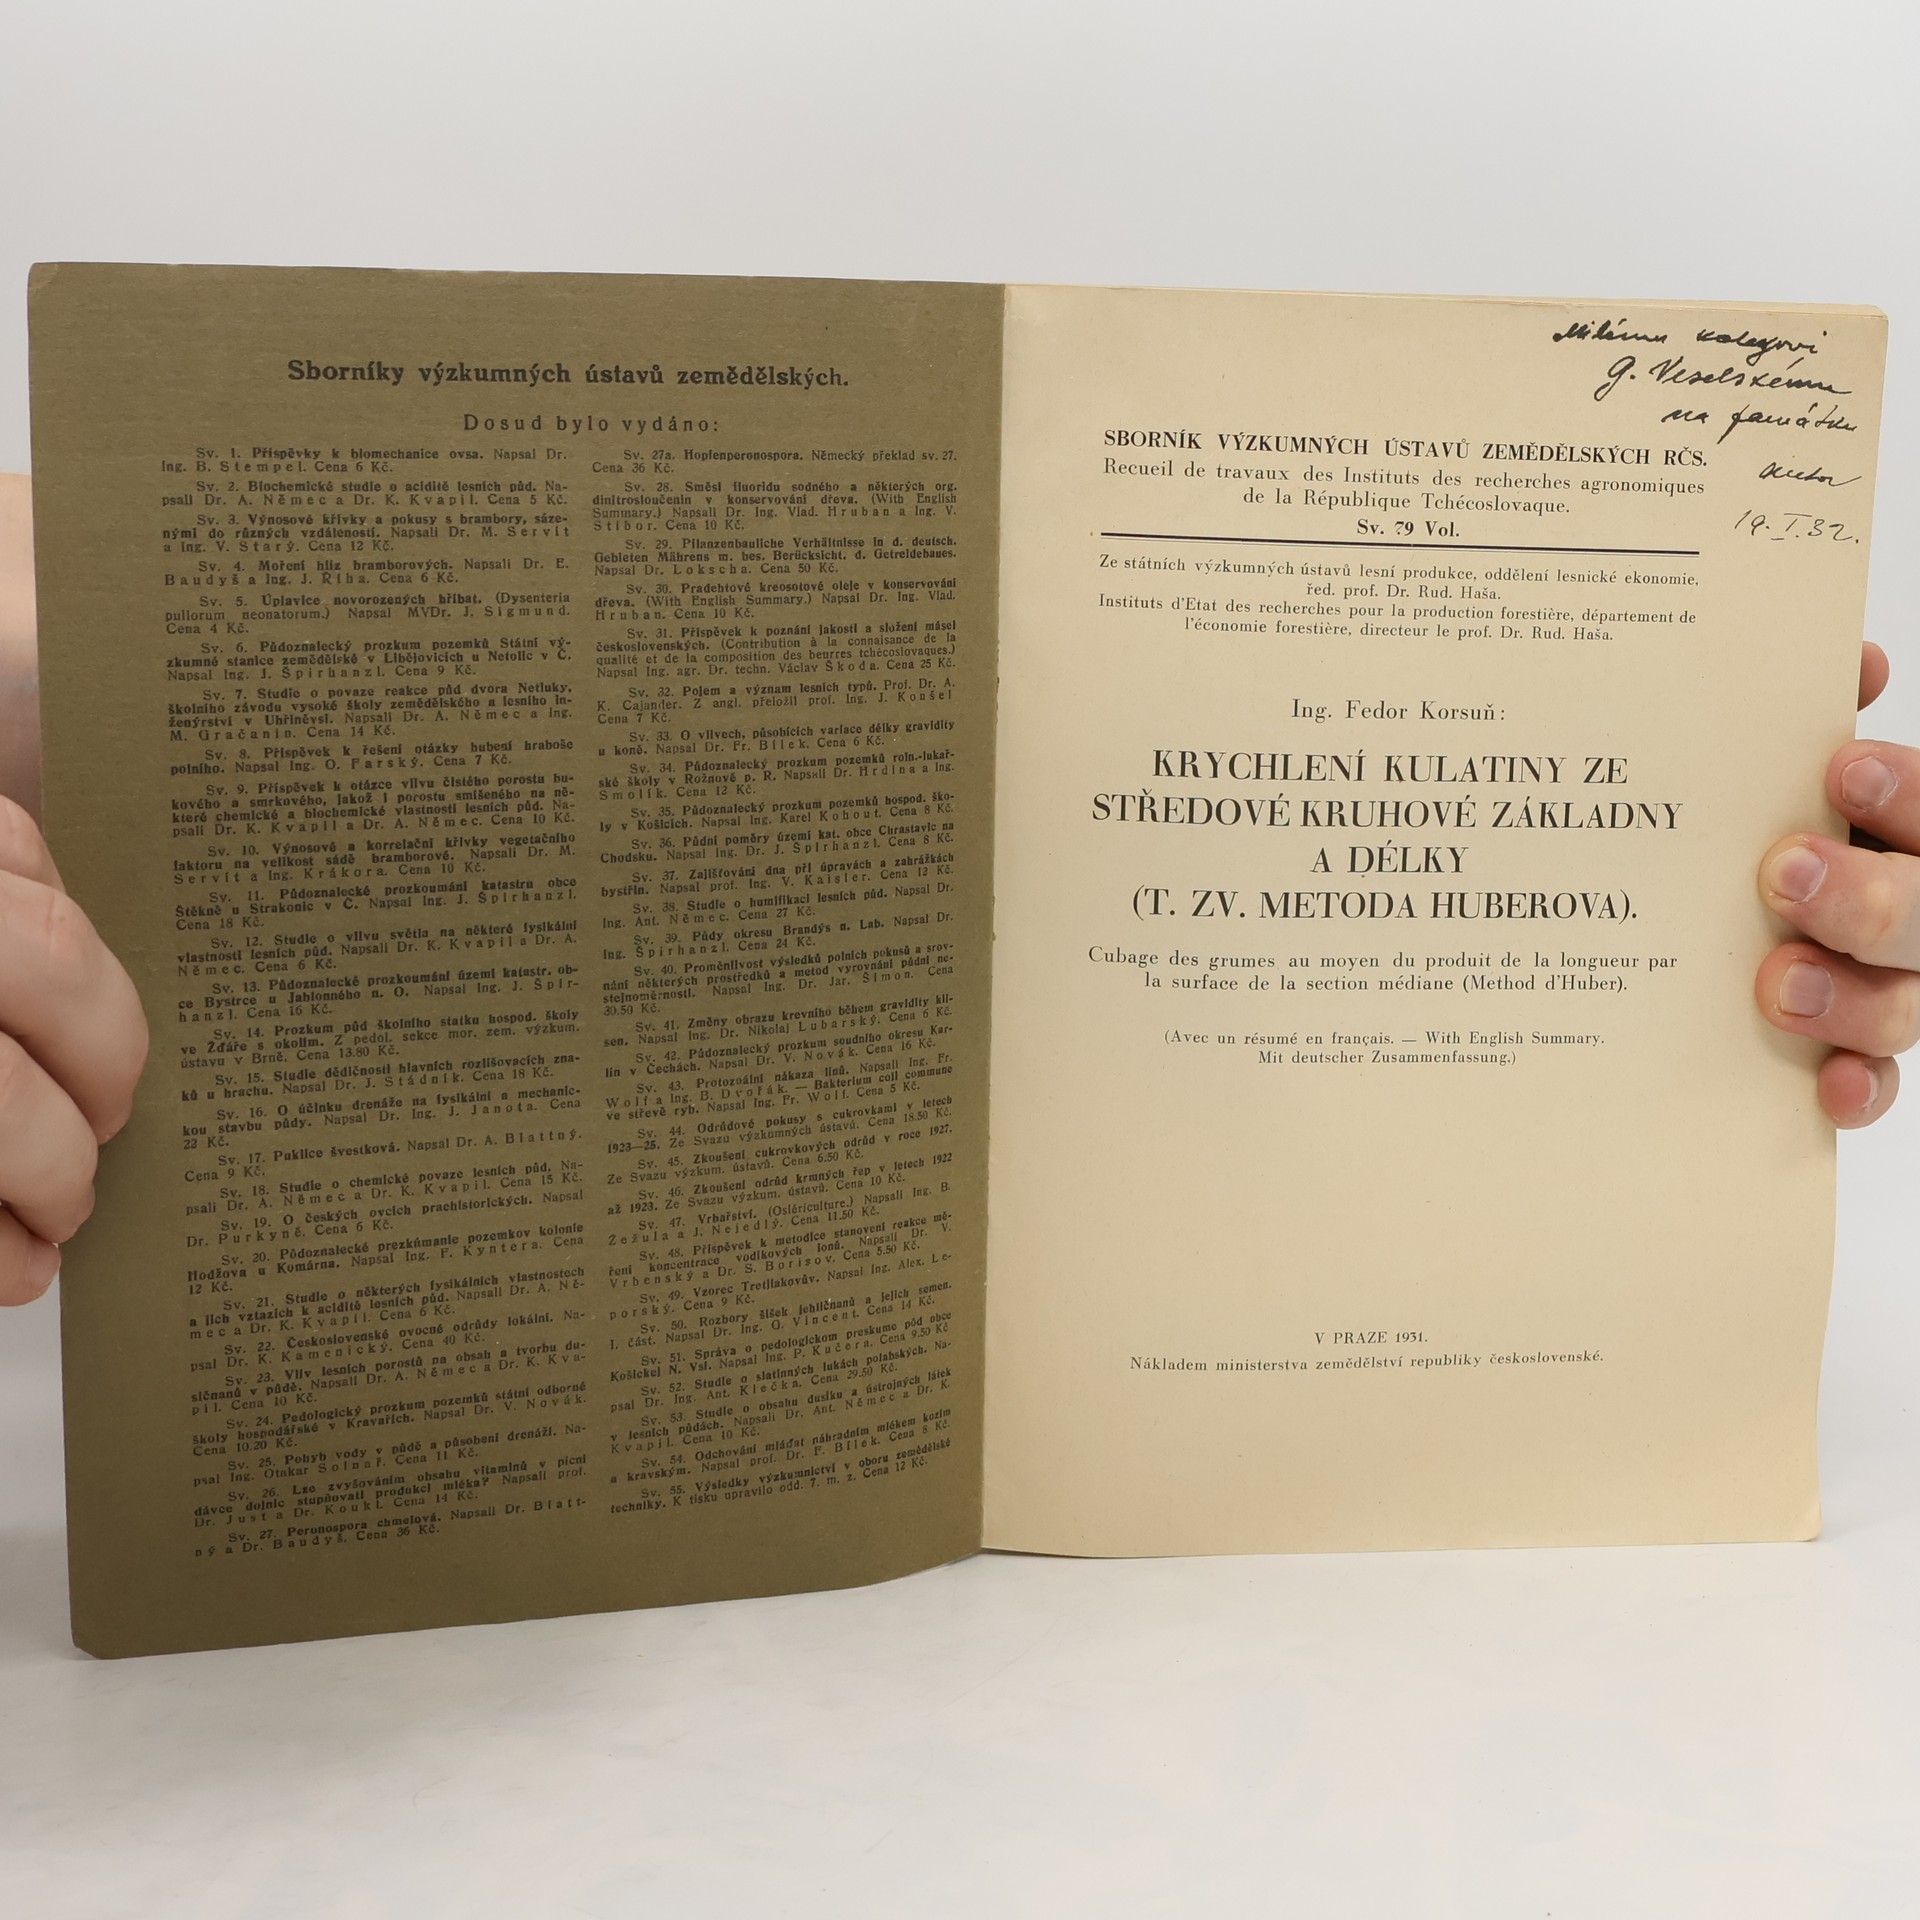 Sborníky výzkumných ústavů zemědělských.
Dosud bylo vydáno:
Sv. 1. Příspěvky k biomechanice ovsa. Napsal Dr.
Ing. B. Stempel. Cena 6 Kč.
Sv. 2. Biochemické studie o aciditě lesních půd. Na-
psali Dr. A. Němec a Dr. K. Kvapil. Cena 5 Kč.
Sv. 3. Výnosové křivky a pokusy s brambory, sáze-
nými do různých vzdáleností. Napsali Dr. M. Servít
a Ing. V. Starý. Cena 12 Kč.
Sv. 4. Moření hlíz bramborových. Napsali Dr. E.
Baudyš a Ing. J. Říha. Cena 6 Kč.
Sv. 5. Úplavice novorozených hříbat. (Dysenteria
pullorum neonatorum.) Napsal MVDr. J. Sigmund.
Cena 4 Kč.
Sv. 6. Půdoznalecký prozkum pozemků Státní vý-
zkumné stanice zemědělské v Libějovicích u Netolic v Č.
Napsal Ing. J. Špirhanzl. Cena 9 Kč.
Sv. 7. Studie o povaze reakce půd dvora Netluky,
školního závodu vysoké školy zemědělského a lesního in-
ženýrství v Uhříněvsi. Napsali Dr. A. Němec a Ing.
M. Gračanin. Cena 14 Kč.
Sv. 8. Příspěvek k řešení otázky hubení hraboše
polního. Napsal Ing. O. Farský. Cena 7 Kč.
Sv. 9. Příspěvek k otázce vlivu čistého porostu bu-
kového a smrkového, jakož i porostu smíšeného na ně-
které chemické a biochemické vlastnosti lesních půd. Na-
psali Dr. K. Kvapil a Dr. A. Němec. Cena 10 Kč.
Sv. 10. Výnosové a korrelační křivky vegetačního
faktoru na velikost sádě bramborové. Napsali Dr. M.
Servít a Ing. Krákora. Cena 10 Kč.
Sv. 11. Půdoznalecké prozkoumání katastru obce
Štěkně u Strakonic v Č. Napsal Ing. J. Špirhanzl.
Cena 18 Kč.
Sv. 12. Studie o vlivu světla na některé fysikální
vlastnosti lesních půd. Napsali Dr. K. Kvapil a Dr. A.
Němec. Cena 6 Kč.
Sv. 13. Půdoznalecké prozkoumání území katastr. ob-
ce Bystrce u Jablonného n. O. Napsal Ing. J. Špir-
hanzl. Cena 16 Kč.
Sv. 14. Prozkum půd školního statku hospod. školy
ve Žďáře s okolím. Z pedol. sekce mor. zem. výzkum.
ústavu v Brně. Cena 13.80 Kč.
Sv. 15. Studie dědičnosti hlavních rozlišovacích zna-
ků u hrachu. Napsal Dr. J. Stádník. Cena 18 Kč.
Sv. 16. O účinku drenáže na fysikální a mechanic-
kou stavbu půdy. Napsal Dr. Ing. J. Janota. Cena
22 Kč.
Sv. 17. Puklice švestková. Napsal Dr. A. Blattný.
Cena 9 Kč.
Sv. 18. Studie o chemické povaze lesních půd. Na-
psali Dr. A. Němec a Dr. K. Kvapil. Cena 15 Kč.
Sv. 19. O českých ovcích prachistorických. Napsal
Dr. Purkyně. Cena 6 Kč.
Sv. 20. Půdoznalecké prezkúmanie pozemkov kolonie
Hodžova u Komárna. Napsal Ing. F. Kyntera. Cena
12 Kč.
Sv. 21. Studie o některých fysikálních vlastnostech
a jich vztazích k aciditě lesních půd. Napsali Dr. A. Ně-
mec a Dr. K. Kvapil. Cena 6 Kč.
Sv. 22. Československé ovocné odrůdy lokální. Na-
psal Dr. K. Kamenický. Cena 40 Kč.
Sv. 23. Vliv lesních porostů na obsah a tvorbu du-
sičnanů v půdě. Napsali Dr. A. Němec a Dr. K. Kva-
pil. Cena 10 Kč.
Sv. 24. Pedologický prozkum pozemků státní odborné
školy hospodářské v Kravařích. Napsal Dr. V. Novák.
Cena 10.20 Kč.
Sv. 25. Pohyb vody v půdě a působení drenáží. Na-
psal Ing. Otakar Solnař. Cena 11 Kč.
Sv. 26. Lze zvyšováním obsahu vitaminů v pícní
dávce dojnic stupňovati produkci mléka? Napsali prof.
Dr. Just a Dr. Koukl. Cena 14 Kč.
Sv. 27. Peronospora chmelová. Napsali Dr. Blatt-
ný a Dr. Baudyš. Cena 36 Kč.
Sv. 27a. Hopfenperonospora. Německý překlad sv. 27.
Cena 36 Kč.
Sv. 28. Směsi fluoridu sodného a některých org.
dinitrosloučenin v konservování dřeva. (With English
Summary.) Napsali Dr. Ing. Vlad. Hruban a Ing. V.
Stibor. Cena 10 Kč.
Sv. 29. Pflanzenbauliche Verhältnisse in d. deutsch.
Gebieten Mährens m. bes. Berücksicht. d. Getreidebaues.
Napsal Dr. Lokscha. Cena 50 Kč.
Sv. 30. Pradehtové kreosotové oleje v konservování
dřeva. (With English Summary.) Napsal Dr. Ing. Vlad.
Hruban. Cena 10 Kč.
Sv. 31. Příspěvek k poznání jakosti a složení másel
československých. (Contribution à la connaisance de la
qualité et de la composition des beurres tchécoslovaques.)
Napsal Ing. agr. Dr. techn. Václav Škoda. Cena 25 Kč.
Sv. 32. Pojem a význam lesních typů. Prof. Dr. A.
K. Cajander. Z angl. přeložil prof. Ing. J. Konšel
Cena 7 Kč.
Sv. 33. O vlivech, působících variace délky gravidity
u koně. Napsal Dr. Fr. Bílek. Cena 6 Kč.
Sv. 34. Půdoznalecký prozkum pozemků roln.-lukař-
ské školy v Rožnově p. R. Napsali Dr. Hrdina a Ing.
Smolík. Cena 12 Kč.
Sv. 35. Půdoznalecký prozkum pozemků hospod. ško-
ly v Košicích. Napsal Ing. Karel Kohout. Cena 8 Kč.
Sv. 36. Půdní poměry území kat. obce Chrastavic na
Chodsku. Napsal Ing. Dr. J. Špirhanzl. Cena 8 Kč.
Sv. 37. Zajišťování dna při úpravách a zahrážkách
bystřin. Napsal prof. Ing. V. Kaisler. Cena 12 Kč.
Sv. 38. Studie o humifikaci lesních půd. Napsal Dr.
Ing. Ant. Němec. Cena 27 Kč.
Sv. 39. Půdy okresu Brandýs n. Lab. Napsal Dr.
Ing. Špirhanzl. Cena 24 Kč.
Sv. 40. Proměnlivost výsledků polních pokusů a srov-
nání některých prostředků a metod vyrovnání půdní ne-
stejnoměrnosti. Napsal Ing. Dr. Jar. Šimon. Cena
30.50 Kč.
Sv. 41. Změny obrazu krevního během gravidity kli-
sen. Napsal Ing. Dr. Nikolaj Lubarský. Cena 6 Kč.
Sv. 42. Půdoznalecký prozkum soudního okresu Kar-
lín v Čechách. Napsal Dr. V. Novák. Cena 16 Kč.
Sv. 43. Protozoální nákaza línů. Napsali Ing. Fr.
Wolf a Ing. B. Dvořák. — Bakterium coli commune
ve střevě ryb. Napsal Ing. Fr. Wolf. Cena 5 Kč.
Sv. 44. Odrůdové pokusy s cukrovkami v letech
1923—25. Ze Svazu výzkumných ústavů. Cena 18.50 Kč.
Sv. 45. Zkoušení cukrovkových odrůd v roce 1927.
Ze Svazu výzkum. ústavů. Cena 6.50 Kč.
Sv. 46. Zkoušení odrůd krmných řep v letech 1922
až 1923. Ze Svazu výzkum. ústavů. Cena 10 Kč.
Sv. 47. Vrbařství. (Osiériculture.) Napsali Ing. B.
Žežula a J. Nejedlý. Cena 11.50 Kč.
Sv. 48. Příspěvek k metodice stanovení reakce mě-
ření koncentrace vodíkových ionů. Napsali Dr. V.
Vrbenský a Dr. S. Borisov. Cena 5.50 Kč.
Sv. 49. Vzorec Tretilakovův. Napsal Ing. Alex. Le-
porský. Cena 9 Kč.
Sv. 50. Rozbory šišek jehličnanů a jejich semen.
I. část. Napsal Dr. Ing. G. Vincent. Cena 14 Kč.
Sv. 51. Správa o pedologickom preskume pôd obce
Košickej N. Vsi. Napsal Ing. P. Kučera. Cena 9.50 Kč
Sv. 52. Studie o slatinných lukách polabských. Na-
psal Dr. Ing. Ant. Klečka. Cena 29.50 Kč.
Sv. 53. Studie o obsahu dusíku a ústrojných látek
v lesních půdách. Napsali Dr. Ant. Němec a Dr. K.
Kvapil. Cena 10 Kč.
Sv. 54. Odchování mláďat náhradním mlékem kozím
a kravským. Napsal prof. Dr. F. Bílek. Cena 8 Kč.
Sv. 55. Výsledky výzkumnictví v oboru zemědělské
techniky. K tisku upravilo odd. 7. m. z. Cena 12 Kč.
Milému kolegovi
G. Veselskému
na památku
Autor
19. I. 32.
SBORNÍK VÝZKUMNÝCH ÚSTAVŮ ZEMĚDĚLSKÝCH RČS.
Recueil de travaux des Instituts des recherches agronomiques
de la République Tchécoslovaque.
Sv. 79 Vol.
Ze státních výzkumných ústavů lesní produkce, oddělení lesnické ekonomie,
řed. prof. Dr. Rud. Haša.
Instituts d'Etat des recherches pour la production forestière, département de
l'économie forestière, directeur le prof. Dr. Rud. Haša.
Ing. Fedor Korsuň:
KRYCHLENÍ KULATINY ZE
STŘEDOVÉ KRUHOVÉ ZÁKLADNY
A DÉLKY
(T. ZV. METODA HUBEROVA).
Cubage des grumes au moyen du produit de la longueur par
la surface de la section médiane (Method d'Huber).
(Avec un résumé en français. — With English Summary.
Mit deutscher Zusammenfassung.)
V PRAZE 1931.
Nákladem ministerstva zemědělství republiky československé.